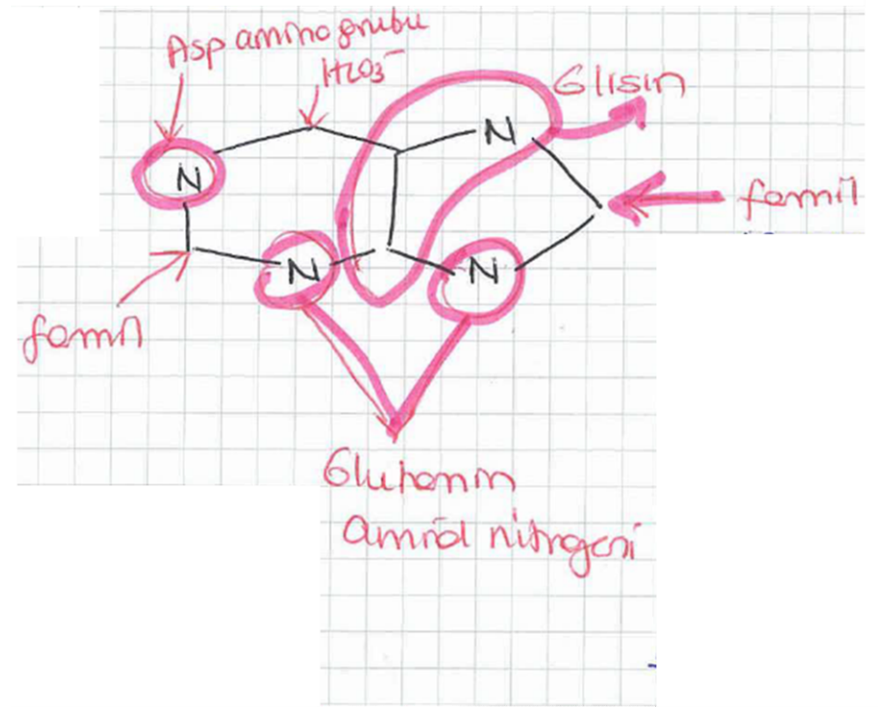 Asp amino grubu
HCO3-
Glisin
N
N
formil
N
N
formil
Glutamin
amid nitrojeni